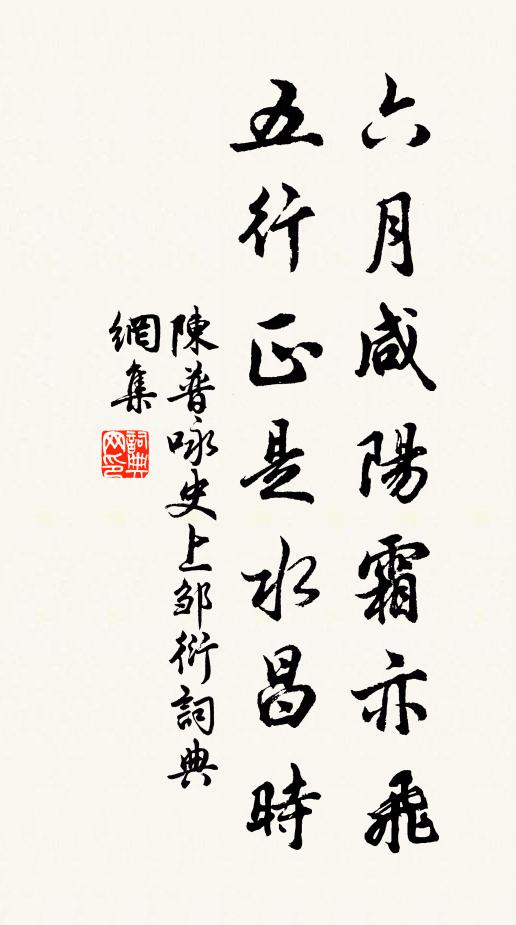 六月咸陽霜亦飛
五行正是水昌時
陳普咏史上邹衍詞典
網集
詞典网印